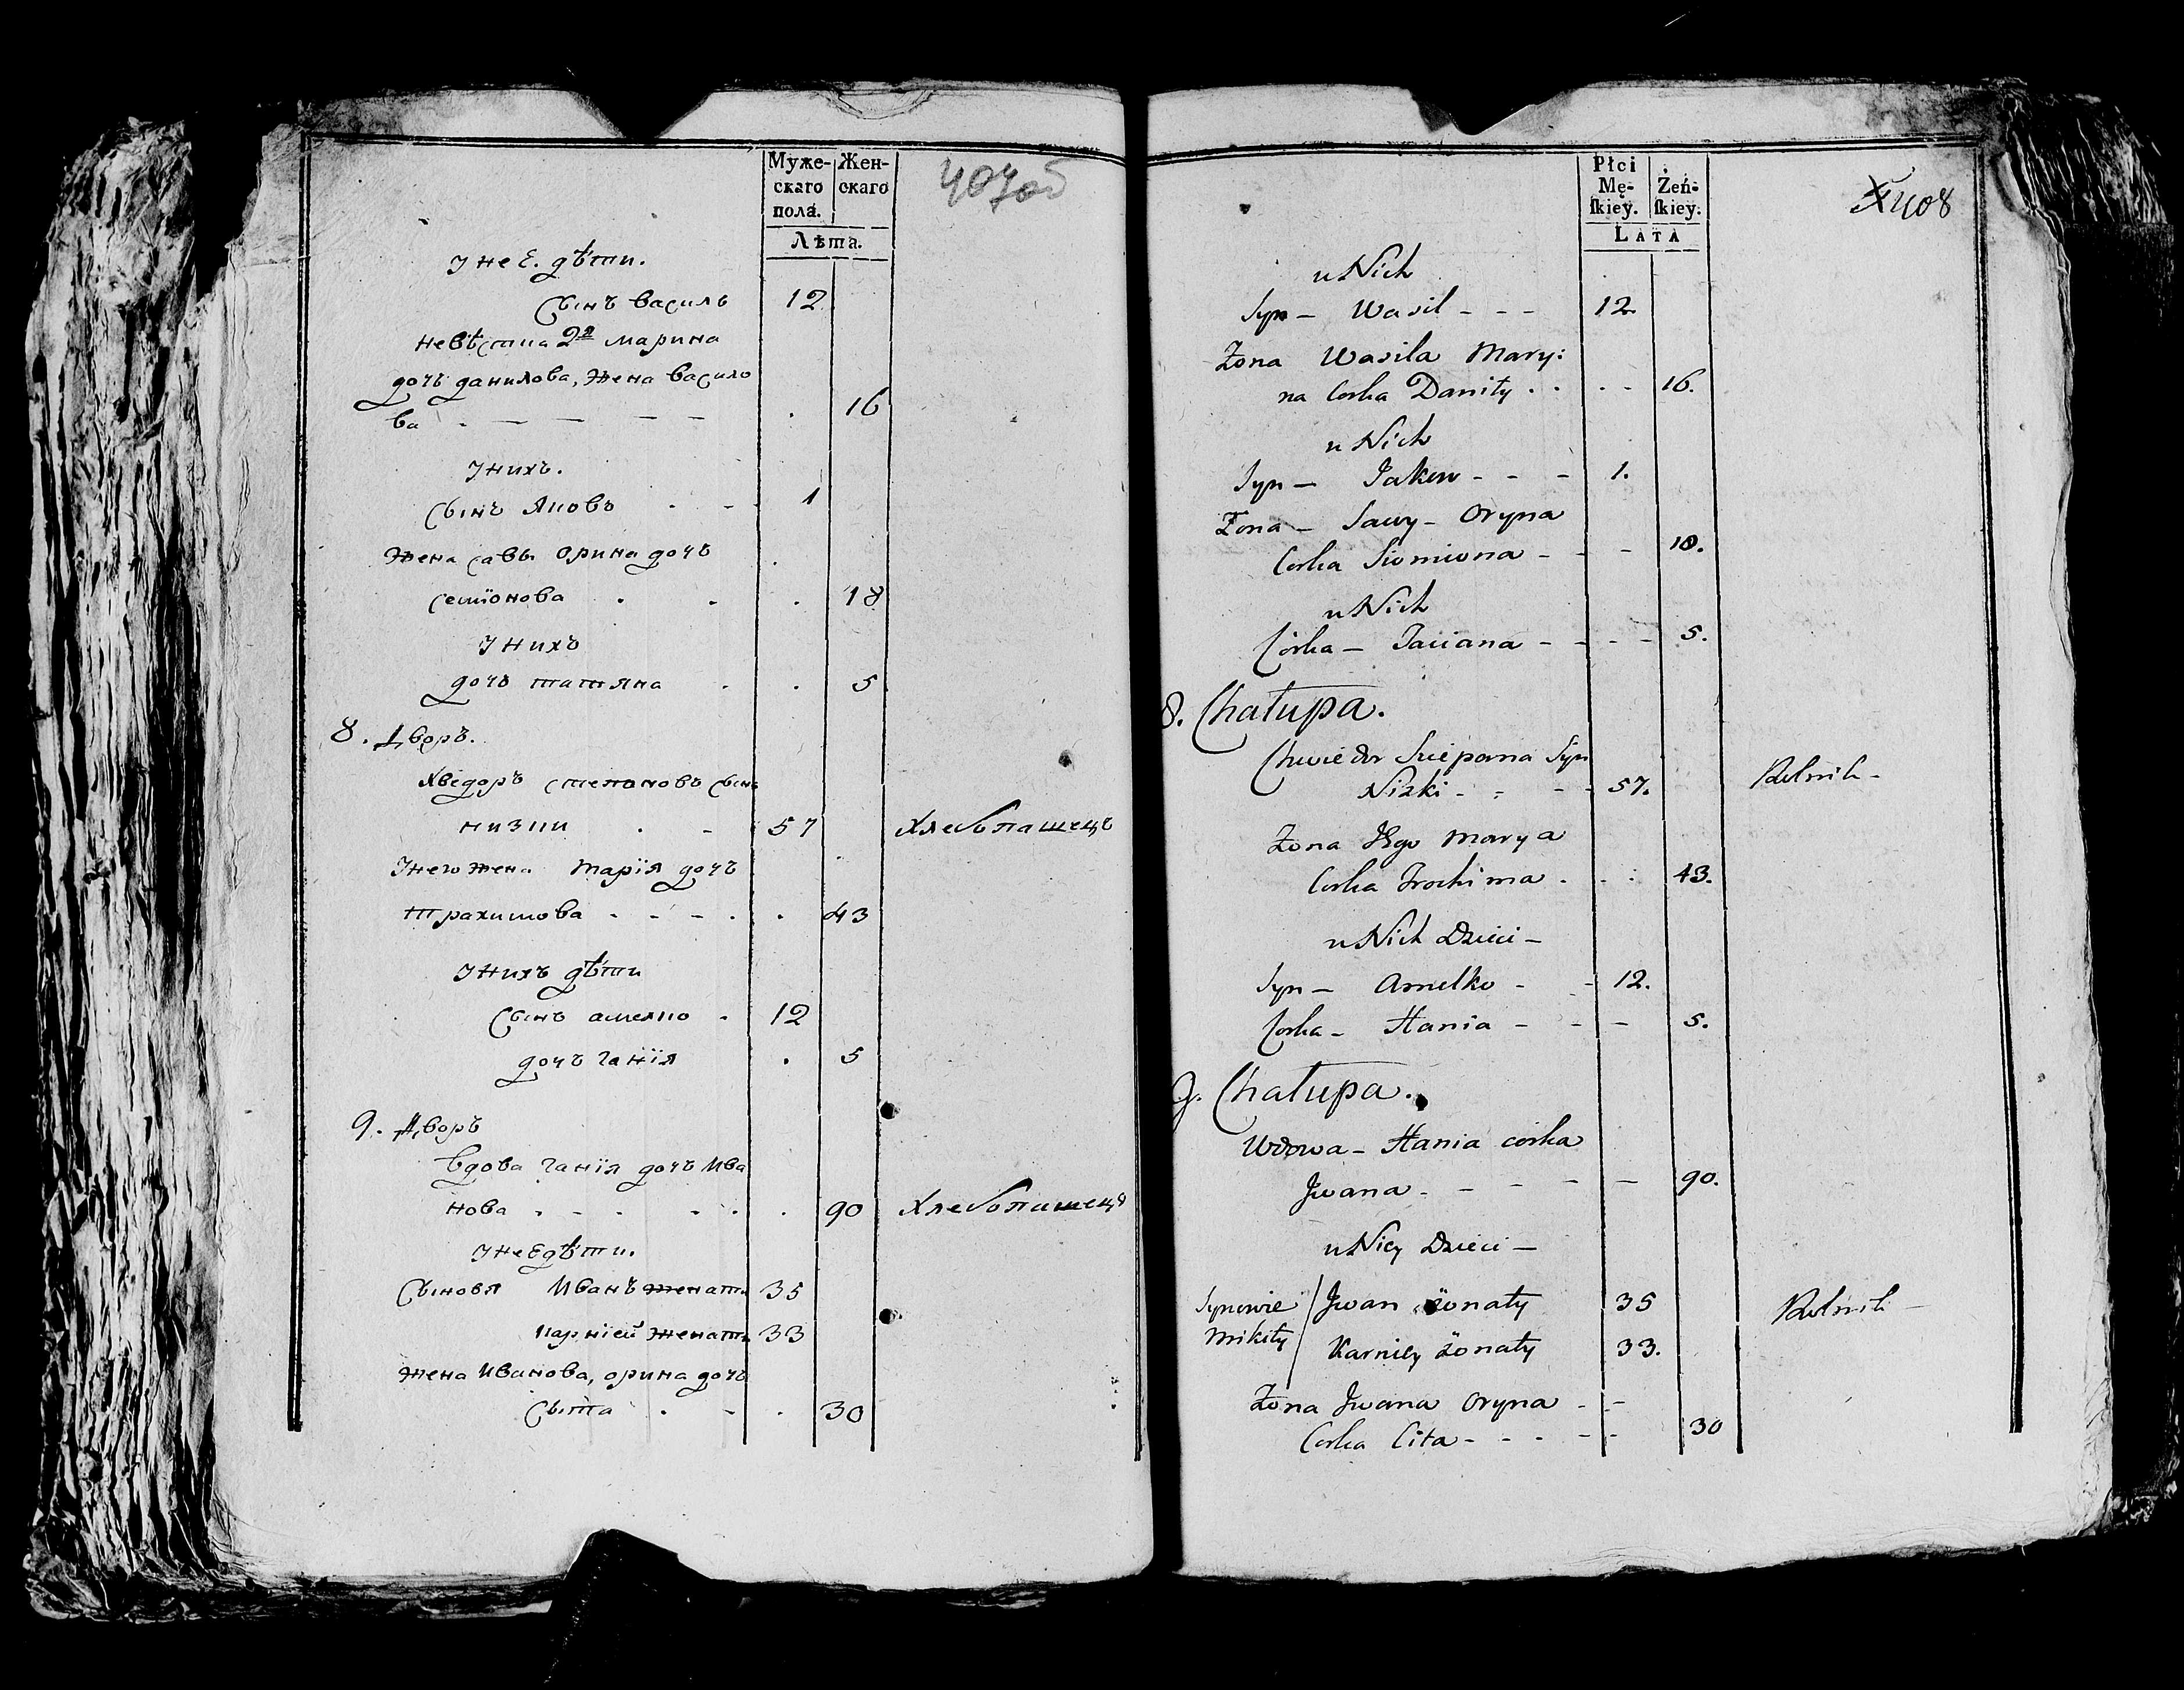 Муже-
скаго
пола.
Жен-
скаго
Лѣта.
407об
У нее дѣти.
сынъ василь 12
невѣстка 2я марина
дочъ данилова, жена васило
ва - - - - - 16
У нихъ.
сынъ Яковъ - - 1
Жена савы Орина дочъ
семіонова . . . 18
У нихъ
дочъ татяна . . 5
8. Дворъ.
Хвідоръ степановъ сынъ
низки . - 57 Хлебопашецъ
У него жена Марія дочъ
Трахимова - - - . . 43
У нихъ дѣти
сынъ амелко . 12
дочъ ганія . 5
9. Дворъ
Вдова ганія дочъ Ива
нова . - . - . . 90 Хлебопашецъ
У нее дѣти.
сыновя Иванъ женатъ 35
карніей женатъ 33
жена Иванова, орина дочъ
сыта . - . 30
Płci
Mę-
ſkiey.
Żeń-
ſkiey.
LATA
408
u Nich
Syn - Wasil - - - 12.
Żona Wasila Mary:
na Corka Daniły . . . - - 16.
u Nich
Syn - Jakow - - - 1.
Żona - Sawy - Oryna
Corka Siomiona - - - 18.
u Nich
Córka - Taciana - - - - 5.
8. Chałupa.
Chwiedor Sciepana Syn
Nizki - - - - 57. Rolnik -
Żona Jego Marya
Corka Trochima . . : 43.
u Nich Dzieci -
Syn - Amelko - - 12.
Corka - Hania - - - 5.
9. Chałupa.
Wdowa - Hania córka
Jwana - - - - - 90.
u Niey Dzieci -
Synowie
Mikity
Jwan żonaty 35 Rolnik -
Karniey żonaty 33.
Żona Jwana Oryna - -
Corka Cita - - - - - 30